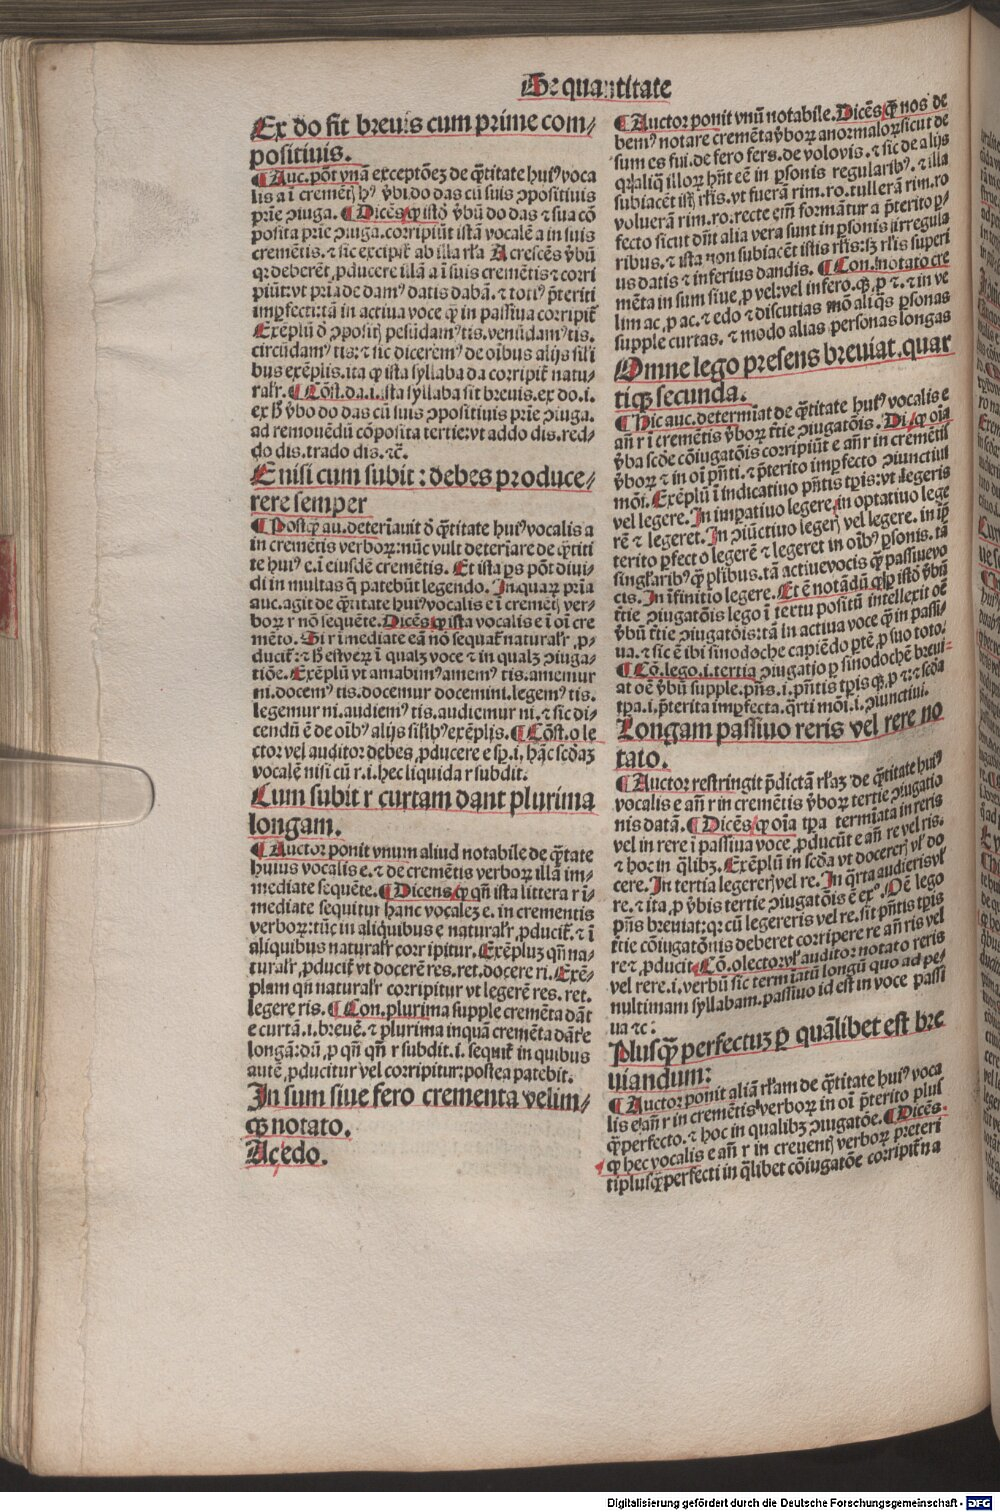 De quantitate
Ex do fit breuis cum prime com⸗
positiuis.
¶ Auc. pōt vnā exceptōeʒ de q̄titate huiꝰ voca
lis a ī cremētꝭ hꝰ v̓bi. do das cū suis ↄpositiuis
prīe ↄiuga. ¶ Dicēs / ꝙ istō v̓bū do das ⁊ sua cō
posita prīe ↄiuga. corripiūt istā vocalē a in suis
cremētis. ⁊ sic excipit᷑ ab illa rl̓a A crescēs v̓bū
qꝛ deberēt ꝓducere illā a ī suis cremētis ⁊ corri
piūt: vt pria de damꝰ datis dabā. ⁊ totiꝰ p̄teriti
imꝑfecti: tā in actiua voce ꝙ̄ in passiua corripit᷑
Exēplū ō ↄpositꝭ pesūdamꝰ tis. venūdamꝰ tis.
circūdamꝰ tis: ⁊ sic dicerēmꝰ de oībus alijs sil̓i
bus exēplis. ita ꝙ ista syllaba da corripit᷑ natu⸗
ral̓r. ¶ Cōst. da .i. ista syllaba fit breuis. ex do .i.
ex h̄ v̓bo do das cū suis ↄpositiuis prīe ↄiuga.
ad remouēdū cōposita tertie: vt addo dis. red⸗
do dis. trado dis. ⁊c̄.
E nisi cum subit: debes produce⸗
rere semper
¶ Postꝙ̄ au. deterīauit ō q̄titate huiꝰ vocalis a
in cremētis verboꝝ: nūc vult deterīare de q̄titi
te huiꝰ e. ī eiusdē cremētis. Et ista ps pōt diui⸗
di in multas q̄ patebūt legendo. In quaꝝ prīa
auc. agit de q̄titate huiꝰ vocalis e ī cremētꝭ ver⸗
boꝝ r nō sequēte. Dicēs / ꝙ ista vocalis e ī oī cre
mēto. Si r imediate eā nō sequat᷑ natural̓r ꝓ⸗
ducit᷑: ⁊ h̄ est veꝝ ī qualꝫ voce ⁊ in qualꝫ ↄiuga⸗
tiōe. Exēplū vt amabimꝰ amemꝰ tis. amemur
ni. docemꝰ tis. docemur docemini. legemꝰ tis.
legemur ni. audiemꝰ tis. audiemur ni. ⁊ sic di⸗
cendū ē de oībꝰ alijs sil̓ibꝰ exēplis. ¶ Cōst. o le
ctor vel auditor debes ꝓducere e sꝑ .i. hāc scdaꝫ
vocalē nisi cū r .i. hec liquida r subdit.
Cum subit r curtam dant plurima
longam.
¶ Auctor ponit vnum aliud notabile de q̄tate
huius vocalis e. ⁊ de cremētis verboꝝ illā im⸗
mediate sequēte. ¶ Dicens / ꝙ qn̄ ista littera r ī⸗
mediate sequitur hanc vocaleʒ e. in crementis
verboꝝ: tūc in aliqͥbus e natural̓r ꝓducit᷑. ⁊ ī
aliquibus natural̓r corripitur. Exēpluʒ qn̄ na⸗
tural̓r ꝓducit᷑ vt docerē res. ret. docere ri. Exē⸗
plum qn̄ natural̓r corripitur vt legerē res. ret.
legere ris. ¶ Con. plurima supple cremēta dāt
e curtā .i. breuē. ⁊ plurima inquā cremēta dāt᷑ e
longā: dū ꝓ qn̄ qn̄ r subdit .i. sequit᷑ in quibus
autē ꝓducitur vel corripitur: postea patebit.
In sum siue fero crementa velim⸗
qꝫ notato.
Ac / edo.
¶ Auctor ponit vnū notabile. Dicēs / ꝙ̄ nos de
bemꝰ notare cremēta v̓boꝝ anormaloꝝ sicut de
sum es fui. de fero fers. de volo vis. ⁊ sic de alijs
qꝛ aliq̄ illoꝝ hn̄t eē in ꝑsonis regularibꝰ. ⁊ illa
subiacēt istꝭ rl̓is. vt fuerā rim. ro. tullerā rim. ro
voluerā rim. ro. recte em̄ formātur a p̄terito ꝑ⸗
fecto sicut dn̄t alia vera sunt in ꝑsonis irregula
ribus. ⁊ ista non subiacēt istis rl̓is: sꝫ rl̓is superi
us datis ⁊ inferius dandis. ¶ Con. notato cre
mēta in sum siue ꝓ vel: vel in fero. qꝫ ꝓ ⁊. ⁊ in ve
lim ac ꝓ ac. ⁊ edo ⁊ discutias mō aliq̄s ꝑsonas
supple curtas. ⁊ modo alias personas longas
Omne lego presens breuiat. quar
tiqꝫ secunda.
¶ Hic auc. determīat de q̄titate huiꝰ vocalis e
añ r ī cremētis v̓boꝝ t̄tie ↄiugatōis. Di. / ꝙ oīa
v̓ba scd̄e cōiugatōis corripiūt e añ r in cremētꝭ
v̓boꝝ ⁊ in oī pn̄ti. ⁊ p̄terito imꝑfecto ↄiunctiui
mōi. Exēplū ī indicatiuo pn̄tis tꝑis: vt legeris
vel legere. In imꝑatiuo legere / in optatiuo lege
rē ⁊ legeret. In ↄiūctiuo legerꝭ vel legere. in īꝑ
terito ꝑfecto legerē ⁊ legeret in oībꝰ ꝑsonis. tā
singl̓aribꝰ ꝙ̄ pl̓ibus. tā actiue vocis ꝙ̄ passiue vo
cis. In īfinitio legere. Et ē notādū ꝙ ꝑ istō v̓bū
t̄tie ↄiugatōis lego ī textu positū intellexit oē
v̓bū t̄tie ↄiugatōis: tā in actiua voce ꝙ̄ in passi⸗
ua. ⁊ sic ē ibi sinodoche capiēdo ꝑtē ꝓ suo toto.
¶ Cō. lego .i. tertia ↄiugatio ꝑ sinodochē breui⸗
at oē v̓bū supple. pn̄s .i. pn̄tis tꝑis qꝫ ꝓ ⁊. ⁊ scd̄a
tꝑa .i. p̄terita imꝑfecta. q̄rti mōi .i. ↄiunctiui.
Longam passiuo reris vel rere no
tato.
¶ Auctor restringit p̄dictā rl̓aʒ de q̄titate huiꝰ
vocalis e añ r in cremētis v̓boꝝ tertie ↄiugatio
nis datā. ¶ Dicēs / ꝙ oīa tꝑa termīata in reris
vel in rere ī passiua voce ꝓducūt e añ re vel ris.
⁊ hoc in q̄libꝫ. Exēplū in scd̄a vt docererꝭ vl̓ do
cere. In tertia legererꝭ vel re. In q̄rta audieris vl̓
re. ⁊ ita ꝓ v̓bis tertie ↄiugatōis ē exͦ. Oē lego
pn̄s breuiat: qꝛ cū legereris vel re. sit pn̄tis tꝑis
t̄tie cōiugatōnis deberet corripere re añ ris vel
re ⁊ ꝓducit. ¶ Cō. o lector vl̓ auditor notato reris
vel rere .i. verbū sic termīatū longū quo ad pe⸗
multimam syllabam. passiuo id est in voce passi
ua ⁊c̄:
Plusꝙ̄ perfectuʒ ꝑ quālibet est bre
uiandum:
¶ Auctor ponit aliā rl̓am de q̄titate huiꝰ voca
lis e añ r in cremētis verboꝝ in oī p̄terito plus
ꝙ̄perfecto. ⁊ hoc in qualibꝫ ↄiugatōe. ¶ Dicēs.
ꝙ hec vocalis e añ r in creuentꝭ verboꝝ preteri
ti plusꝙ̄perfecti in q̄libet cōiugatōe corripit᷑ na
Digitalisierung gefördert durch die Deutsche Forschungsgemeinschaft - DFG